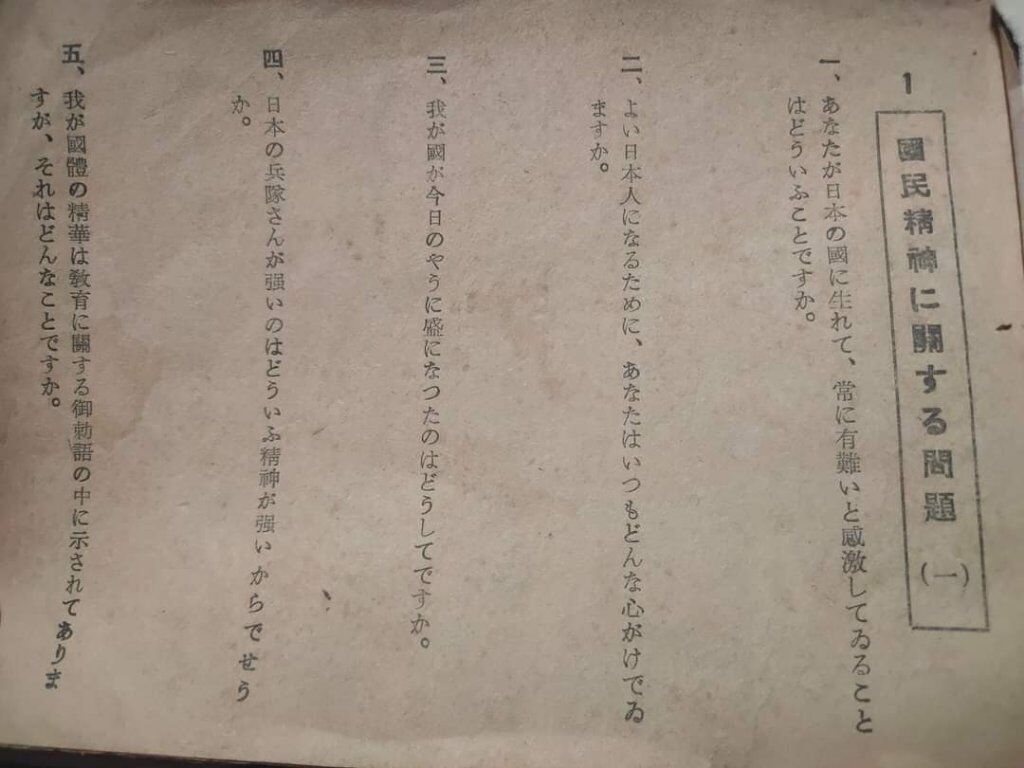 1
國民精神に關する問題（一）
一、あなたが日本の國に生れて、常に有難いと感激してゐること
はどういふことですか。
二、よい日本人になるために、あなたはいつもどんな心がけでゐ
ますか。
三、我が國が今日のやうに盛になつたのはどうしてですか。
四、日本の兵隊さんが强いのはどういふ精神が强いからでせう
か。
五、我が國體の精華は敎育に關する御勅語の中に示されてありま
すが、それはどんなことですか。